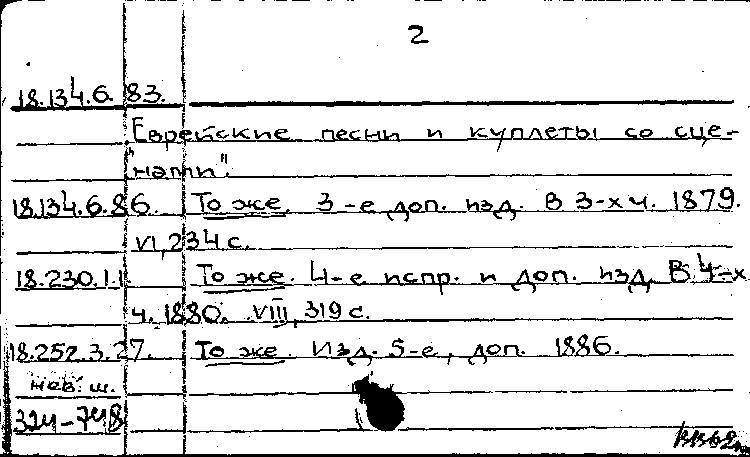 2
18.134.6.83.
Еврейские песни и куплеты со сце-
"нати".
18.134.6.86. То же. 3-е доп. изд. В 3-х ч. 1879.
VI, 234 с.
18.230.1.1. То же. 4-е испр. и доп. изд. В 4-х
ч. 1880. VIII, 319 с.
18.252.3.27. То же. Изд. 5-е, доп. 1886.
нов. ш.
324-748